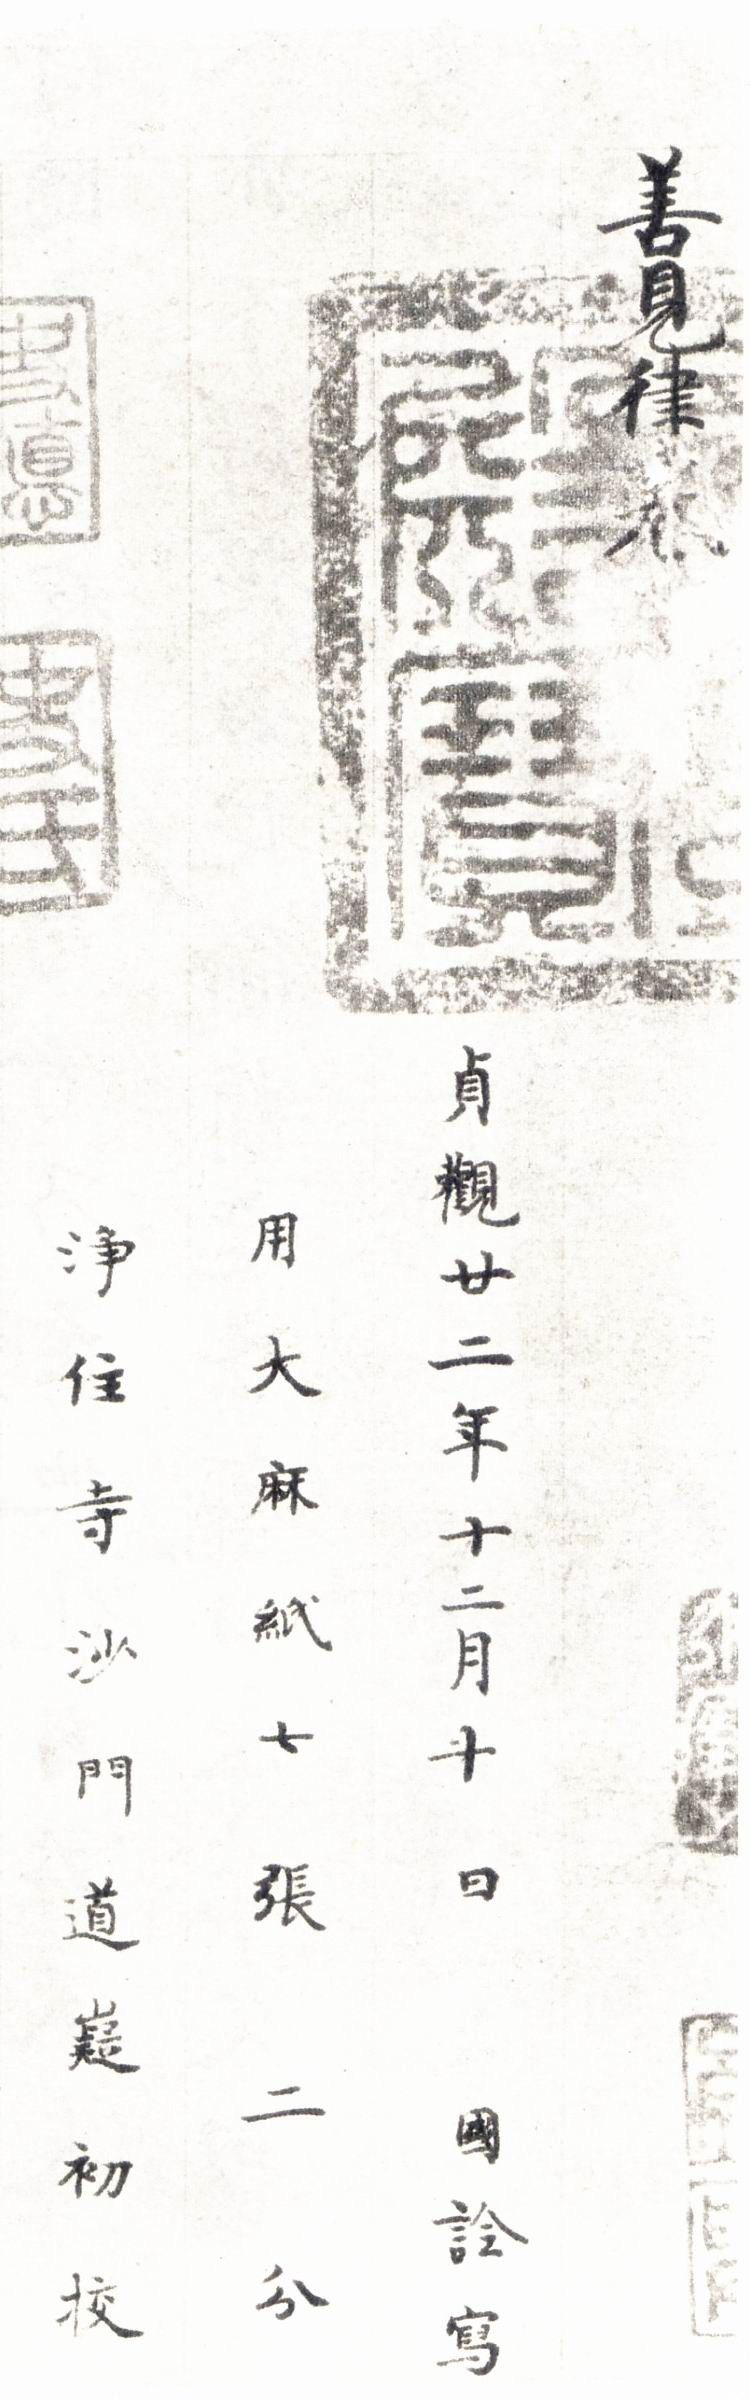 善見律卷
貞觀廿二年十二月十日 國詮寫
用大麻紙七張二分
淨住寺沙門道嶷初挍